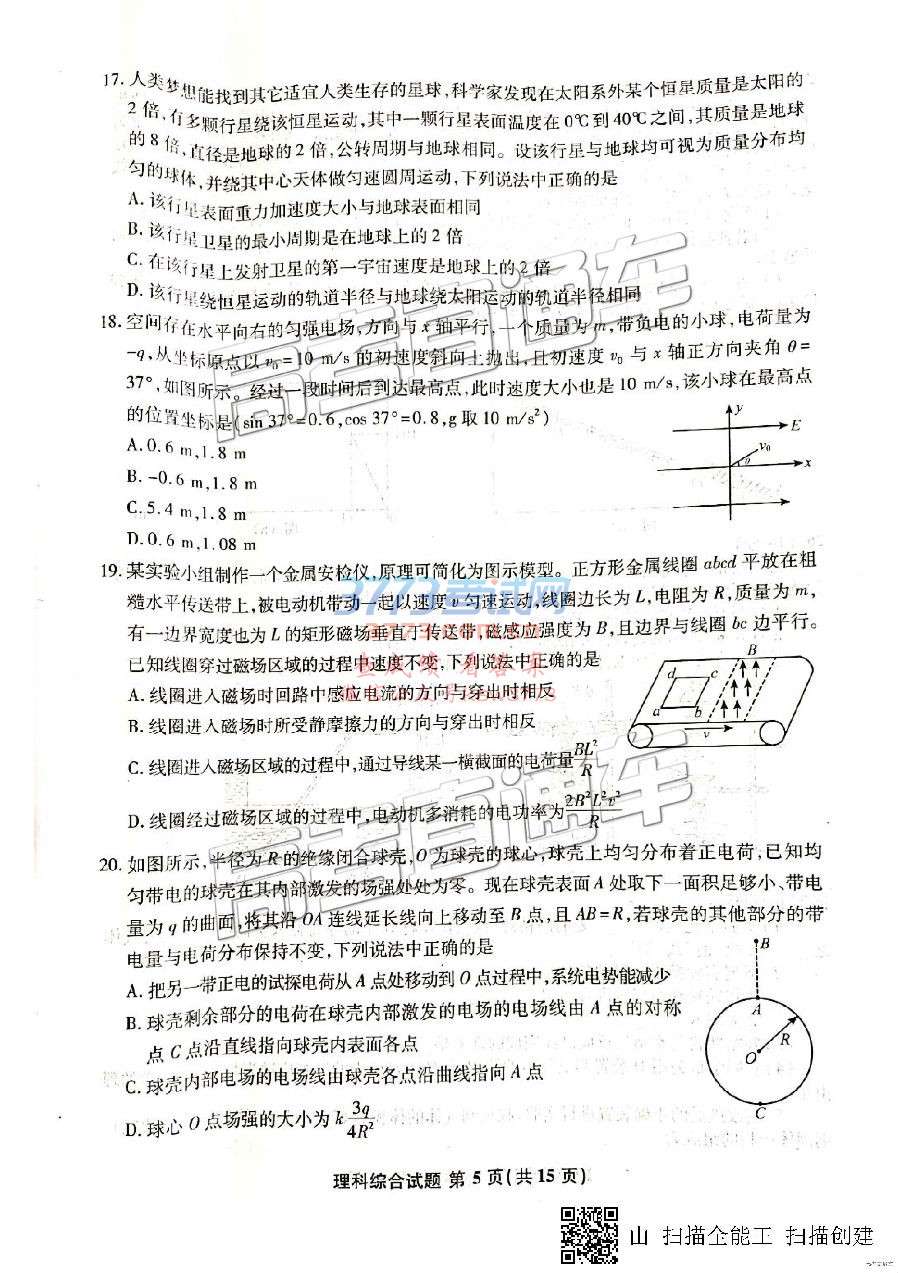 17. 人类梦想能找到其它适宜人类生存的星球,科学家发现在太阳系外某个恒星质量是太阳的
2 倍,有多颗行星绕该恒星运动,其中一颗行星表面温度在 0℃到 40℃之间,其质量是地球
的 8 倍,直径是地球的 2 倍,公转周期与地球相同。设该行星与地球均可视为质量分布均
匀的球体,并绕其中心天体做匀速圆周运动,下列说法中正确的是
A. 该行星表面重力加速度大小与地球表面相同
B. 该行星卫星的最小周期是在地球上的 2 倍
C. 在该行星上发射卫星的第一宇宙速度是地球上的 2 倍
D. 该行星绕恒星运动的轨道半径与地球绕太阳运动的轨道半径相同
18. 空间存在水平向右的匀强电场,方向与 x 轴平行,一个质量为 m,带负电的小球,电荷量为
-q,从坐标原点以 v₀=10 m/s 的初速度斜向上抛出,且初速度 v₀ 与 x 轴正方向夹角 θ=
37°,如图所示。经过一段时间后到达最高点,此时速度大小也是 10 m/s,该小球在最高点
的位置坐标是(sin 37°=0.6,cos 37°=0.8,g 取 10 m/s²)
A. 0.6 m,1.8 m
B. -0.6 m,1.8 m
C. 5.4 m,1.8 m
D. 0.6 m,1.08 m
y
E
v₀
θ
x
19. 某实验小组制作一个金属安检仪,原理可简化为图示模型。正方形金属线圈 abcd 平放在粗
糙水平传送带上,被电动机带动一起以速度 v 匀速运动,线圈边长为 L,电阻为 R,质量为 m,
有一边界宽度也为 L 的矩形磁场垂直于传送带,磁感应强度为 B,且边界与线圈 bc 边平行。
已知线圈穿过磁场区域的过程中速度不变,下列说法中正确的是
A. 线圈进入磁场时回路中感应电流的方向与穿出时相反
B. 线圈进入磁场时所受静摩擦力的方向与穿出时相反
C. 线圈进入磁场区域的过程中,通过导线某一横截面的电荷量 BL²/R
D. 线圈经过磁场区域的过程中,电动机多消耗的电功率为 2B²L²v²/R
B
d
c
a
b
v
20. 如图所示,半径为 R 的绝缘闭合球壳,O 为球壳的球心,球壳上均匀分布着正电荷,已知均
匀带电的球壳在其内部激发的场强处处为零。现在球壳表面 A 处取下一面积足够小、带电
量为 q 的曲面,将其沿 OA 连线延长线向上移动至 B 点,且 AB=R,若球壳的其他部分的带
电量与电荷分布保持不变,下列说法中正确的是
A. 把另一带正电的试探电荷从 A 点处移动到 O 点过程中,系统电势能减少
B. 球壳剩余部分的电荷在球壳内部激发的电场的电场线由 A 点的对称
点 C 点沿直线指向球壳内表面各点
C. 球壳内部电场的电场线由球壳各点沿曲线指向 A 点
D. 球心 O 点场强的大小为 k 3q/4R²
B
A
R
O
C
理科综合试题 第 5 页(共 15 页)
高考直通车
3773考试网
3773.com
查成绩 看答案
高考直通车
山 扫描全能王 扫描创建